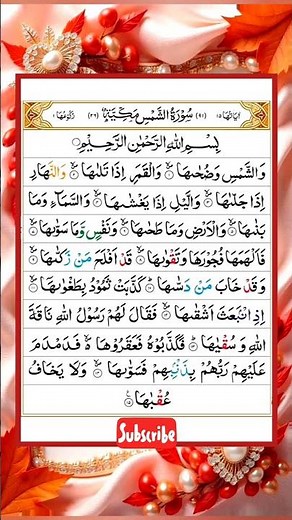 اٰیاتها ۱۵ (۹۱) سُوْرَةُ الشَّمْسِ مَكِّیَّةٌ (۲۶) رُكُوْعُهَا ۱
بِسْمِ اللّٰهِ الرَّحْمٰنِ الرَّحِیْمِ
وَالشَّمْسِ وَضُحٰىهَا ۪ۙ۝۱ وَالْقَمَرِ اِذَا تَلٰىهَا ۪ۙ۝۲ وَالنَّهَارِ
اِذَا جَلّٰىهَا ۪ۙ۝۳ وَالَّیْلِ اِذَا یَغْشٰىهَا ۪ۙ۝۴ وَالسَّمَآءِ وَمَا
بَنٰىهَا ۪ۙ۝۵ وَالْاَرْضِ وَمَا طَحٰىهَا ۪ۙ۝۶ وَنَفْسٍ وَّمَا سَوّٰىهَا ۪ۙ۝۷
فَاَلْهَمَهَا فُجُوْرَهَا وَتَقْوٰىهَا ۪ۙ۝۸ قَدْ اَفْلَحَ مَنْ زَكّٰىهَا ۪ۙ۝۹
وَقَدْ خَابَ مَنْ دَسّٰىهَا ؕ۝۱۰ كَذَّبَتْ ثَمُوْدُ بِطَغْوٰىهَاۤ ۪ۙ۝۱۱
اِذِ انْۢبَعَثَ اَشْقٰىهَا ۪ۙ۝۱۲ فَقَالَ لَهُمْ رَسُوْلُ اللّٰهِ نَاقَةَ
اللّٰهِ وَسُقْیٰهَا ؕ۝۱۳ فَكَذَّبُوْهُ فَعَقَرُوْهَا ۪ۙ۬ فَدَمْدَمَ
عَلَیْهِمْ رَبُّهُمْ بِذَنْۢبِهِمْ فَسَوّٰىهَا ۪ۙ۝۱۴ وَلَا یَخَافُ
عُقْبٰهَا ۠۝۱۵
Subscribe